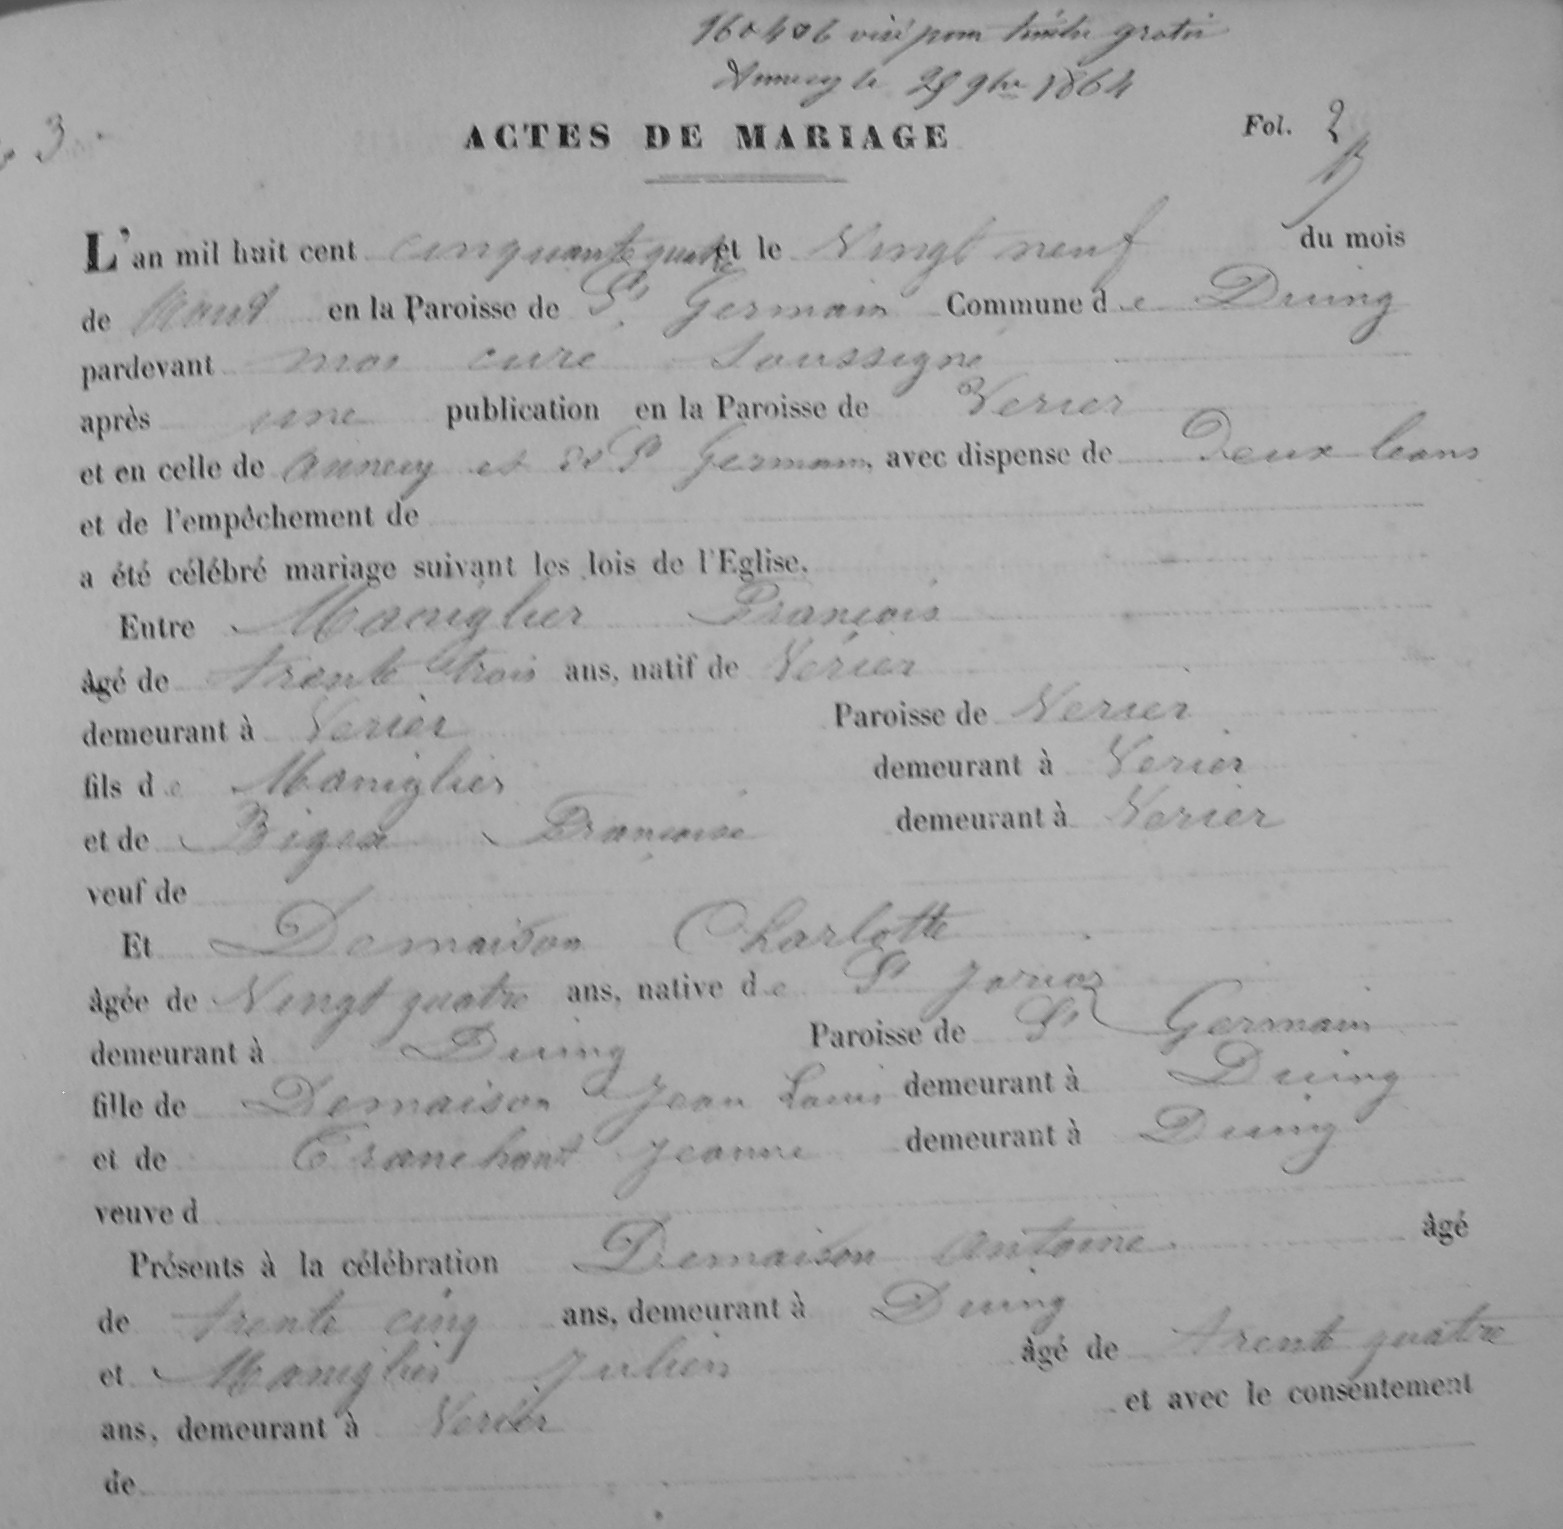 160406 visé pour timbre gratis
Annecy le 29 9bre 1864
3
ACTES DE MARIAGE
Fol. 2
L'an mil huit cent cinquante quatre et le Vingt neuf du mois
de Aout en la Paroisse de St Germain Commune de Duing
pardevant moi curé soussigné
après une publication en la Paroisse de Verier
et en celle de annecy et de St Germain, avec dispense de Deux bans
et de l'empêchement de
a été célébré mariage suivant les lois de l'Eglise.
Entre Maniglier François
âgé de trente trois ans, natif de Verier
demeurant à Verier Paroisse de Verier
fils de Maniglier demeurant à Verier
et de Bigex Françoise demeurant à Verier
veuf de
Et Demaison Charlotte
âgée de Vingt quatre ans, native de St Jorioz
demeurant à Duing Paroisse de St Germain
fille de Demaison Jean Louis demeurant à Duing
et de Tranchant Jeanne demeurant à Duing
veuve d
Présents à la célébration Demaison antoine âgé
de trente cinq ans, demeurant à Duing
et Maniglier Julien âgé de trente quatre
ans, demeurant à Verier et avec le consentement
de